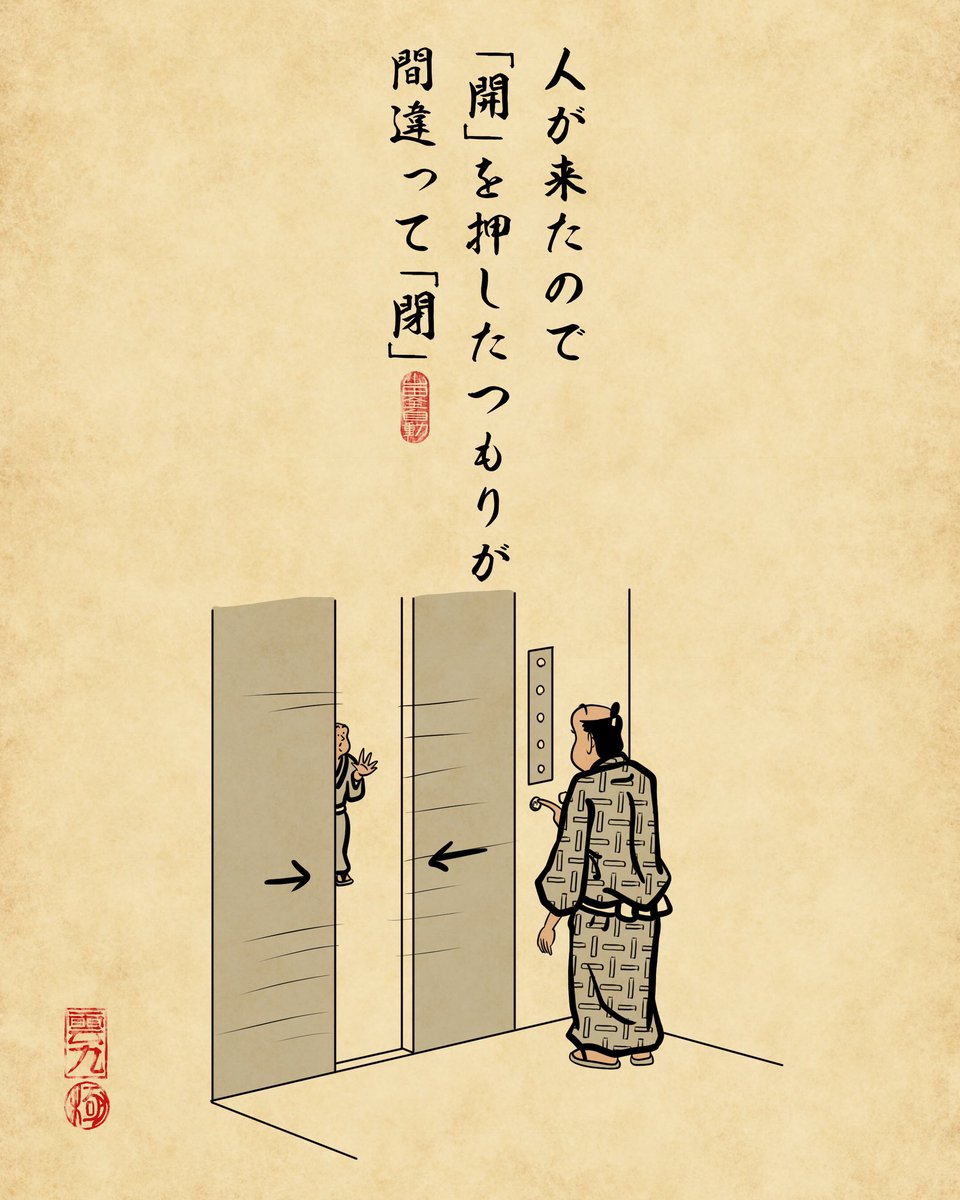 人が来たので
「開」を押したつもりが
間違って「閉」